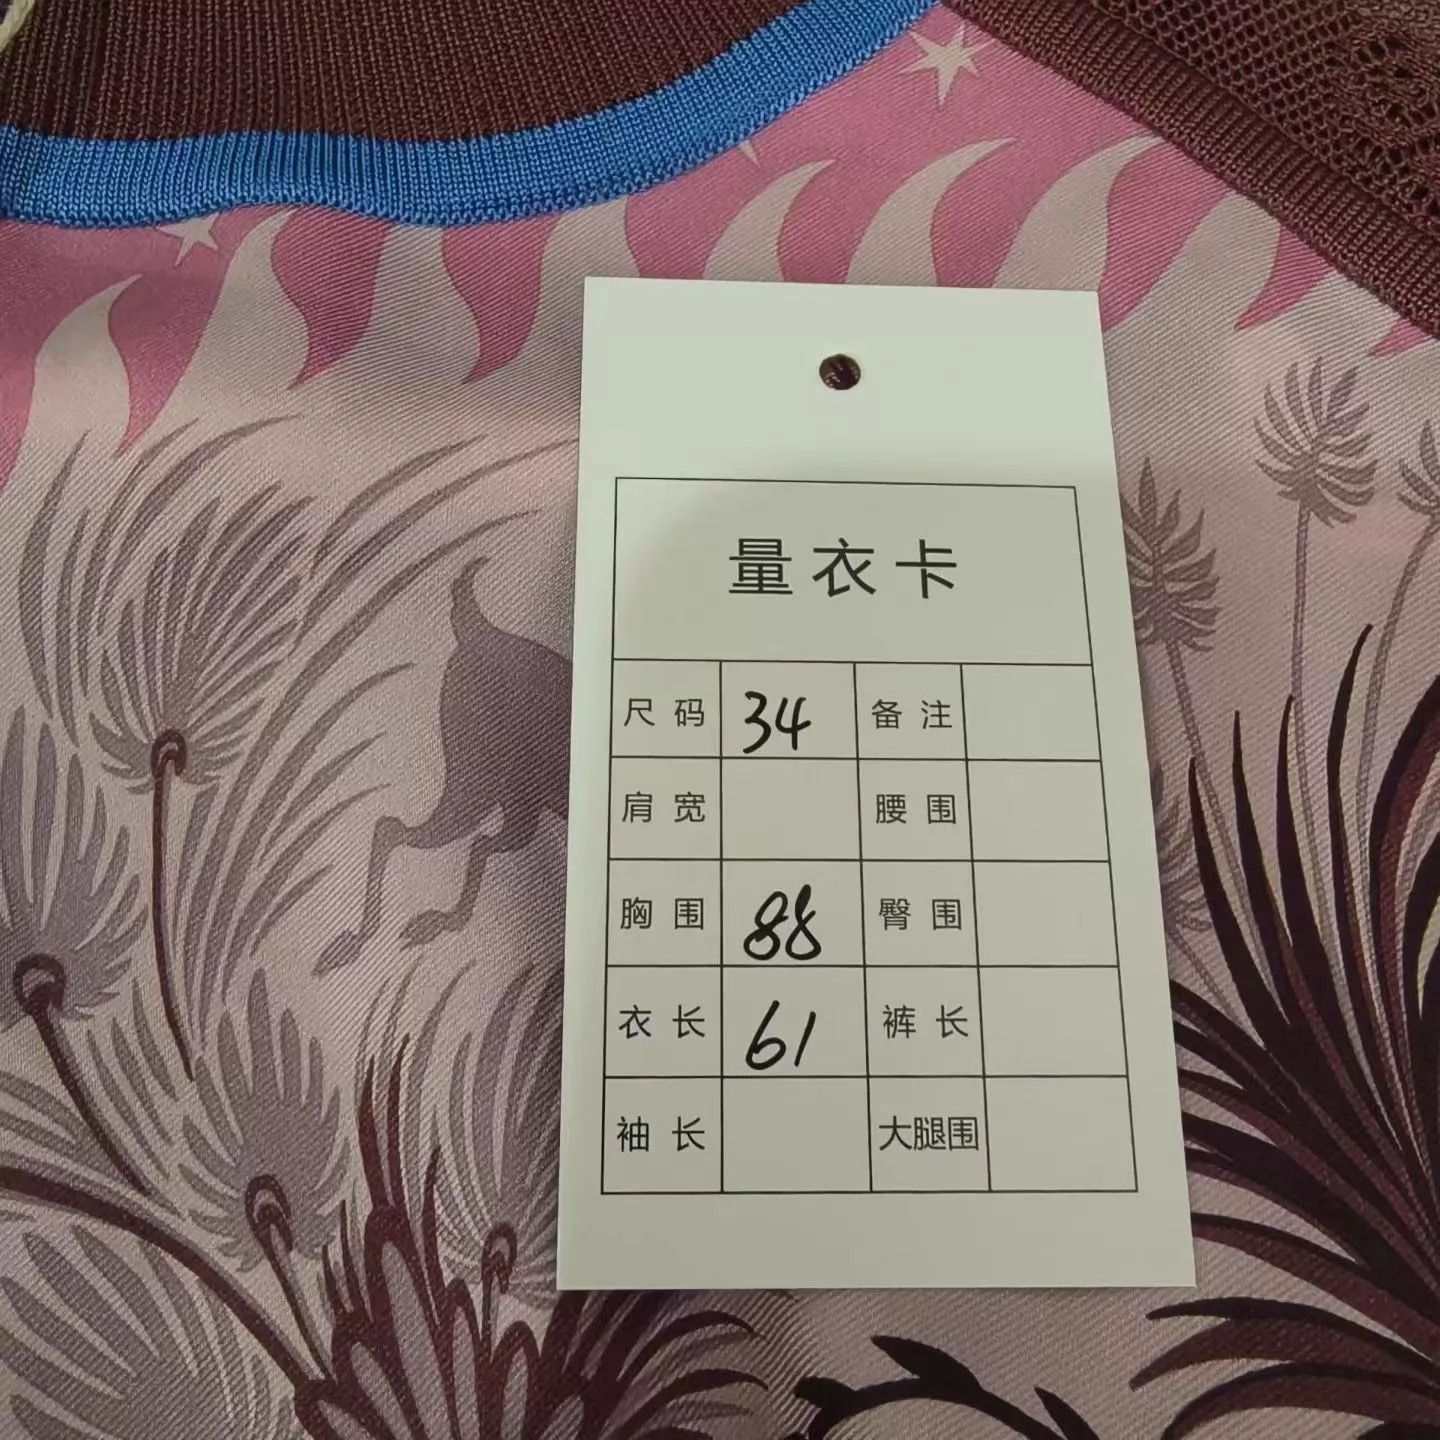 量衣卡
尺码 34 备注
肩宽 腰围
胸围 88 臀围
衣长 61 裤长
袖长 大腿围